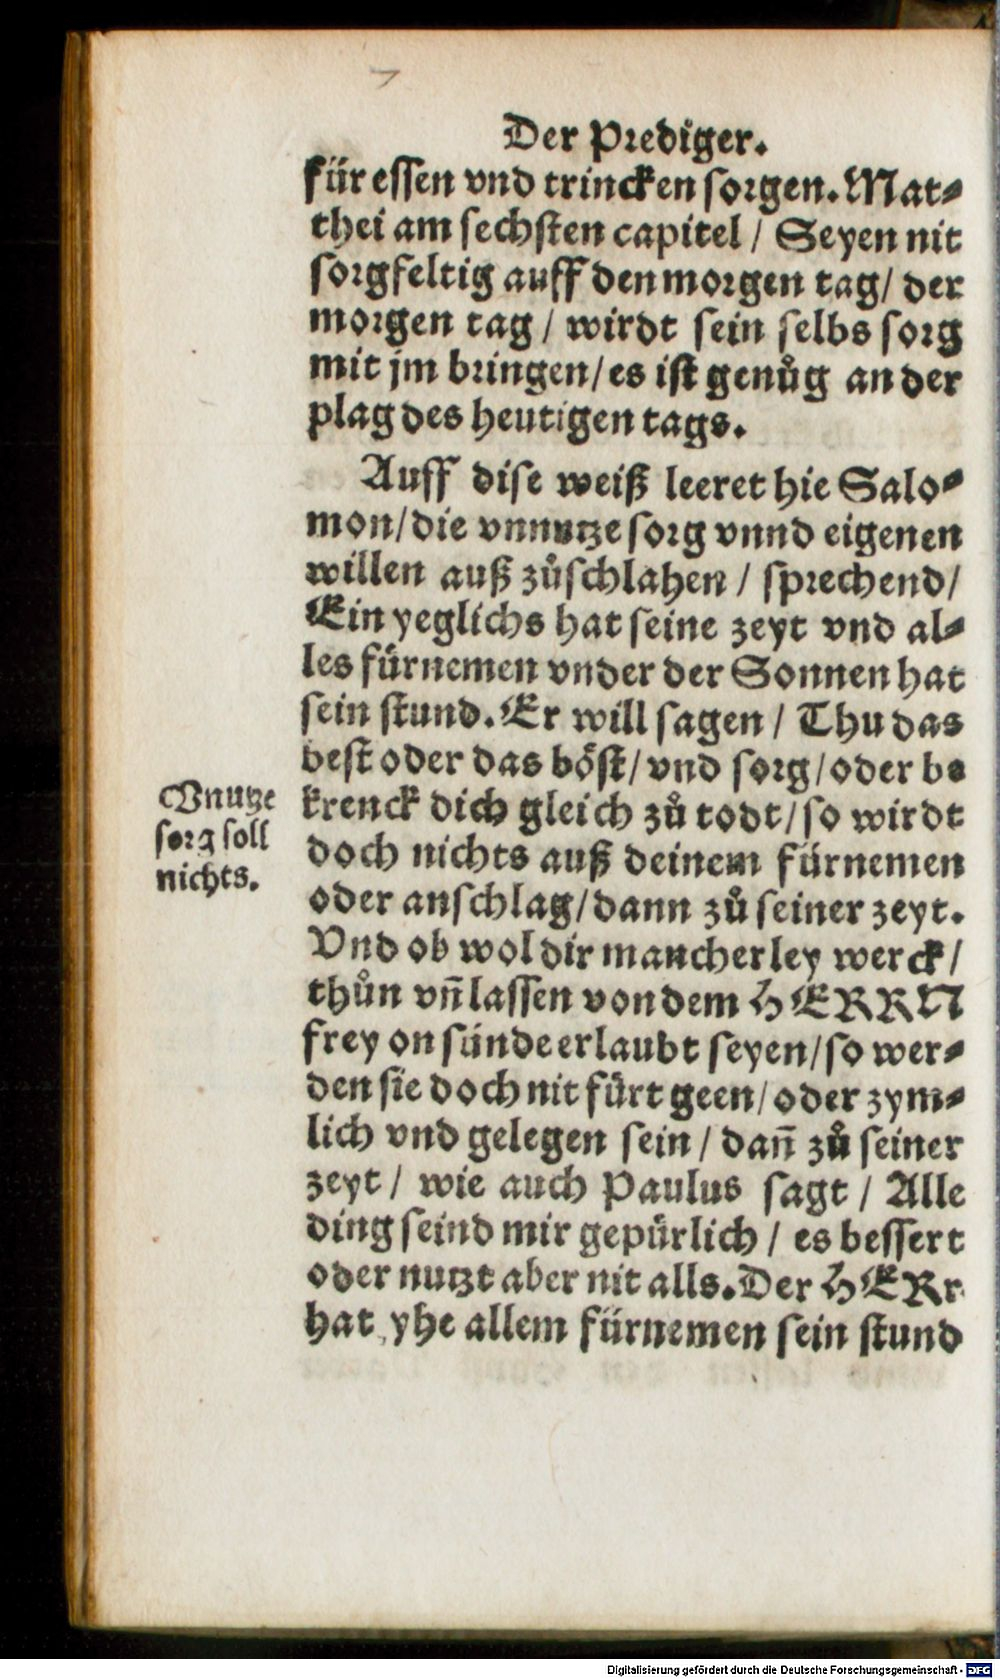 Der Prediger.
für essen vnd trincken sorgen. Mat⸗
thei am sechsten capitel / Seyen nit
sorgfeltig auff den morgen tag / der
morgen tag / wirdt sein selbs sorg
mit jm bringen / es ist genůg an der
plag des heutigen tags.
Auff dise weiß leeret hie Salo⸗
mon / die vnnutze sorg vnnd eigenen
willen auß zůschlahen / sprechend /
Ein yeglichs hat seine zeyt vnd al⸗
les fürnemen vnder der Sonnen hat
sein stund. Er will sagen / Thu das
best oder das böst / vnd sorg / oder be
krenck dich gleich zů todt / so wirdt
doch nichts auß deinem fürnemen
oder anschlag / dann zů seiner zeyt.
Vnd ob wol dir mancherley werck /
thůn vn̄ lassen von dem HERRN
frey on sünde erlaubt seyen / so wer⸗
den sie doch nit fürt geen / oder zym⸗
lich vnd gelegen sein / dan̄ zů seiner
zeyt / wie auch Paulus sagt / Alle
ding seind mir gepürlich / es bessert
oder nutzt aber nit alls. Der HERr
hat yhe allem fürnemen sein stund
Vnutze
sorg soll
nichts.
Digitalisierung gefördert durch die Deutsche Forschungsgemeinschaft - DFG